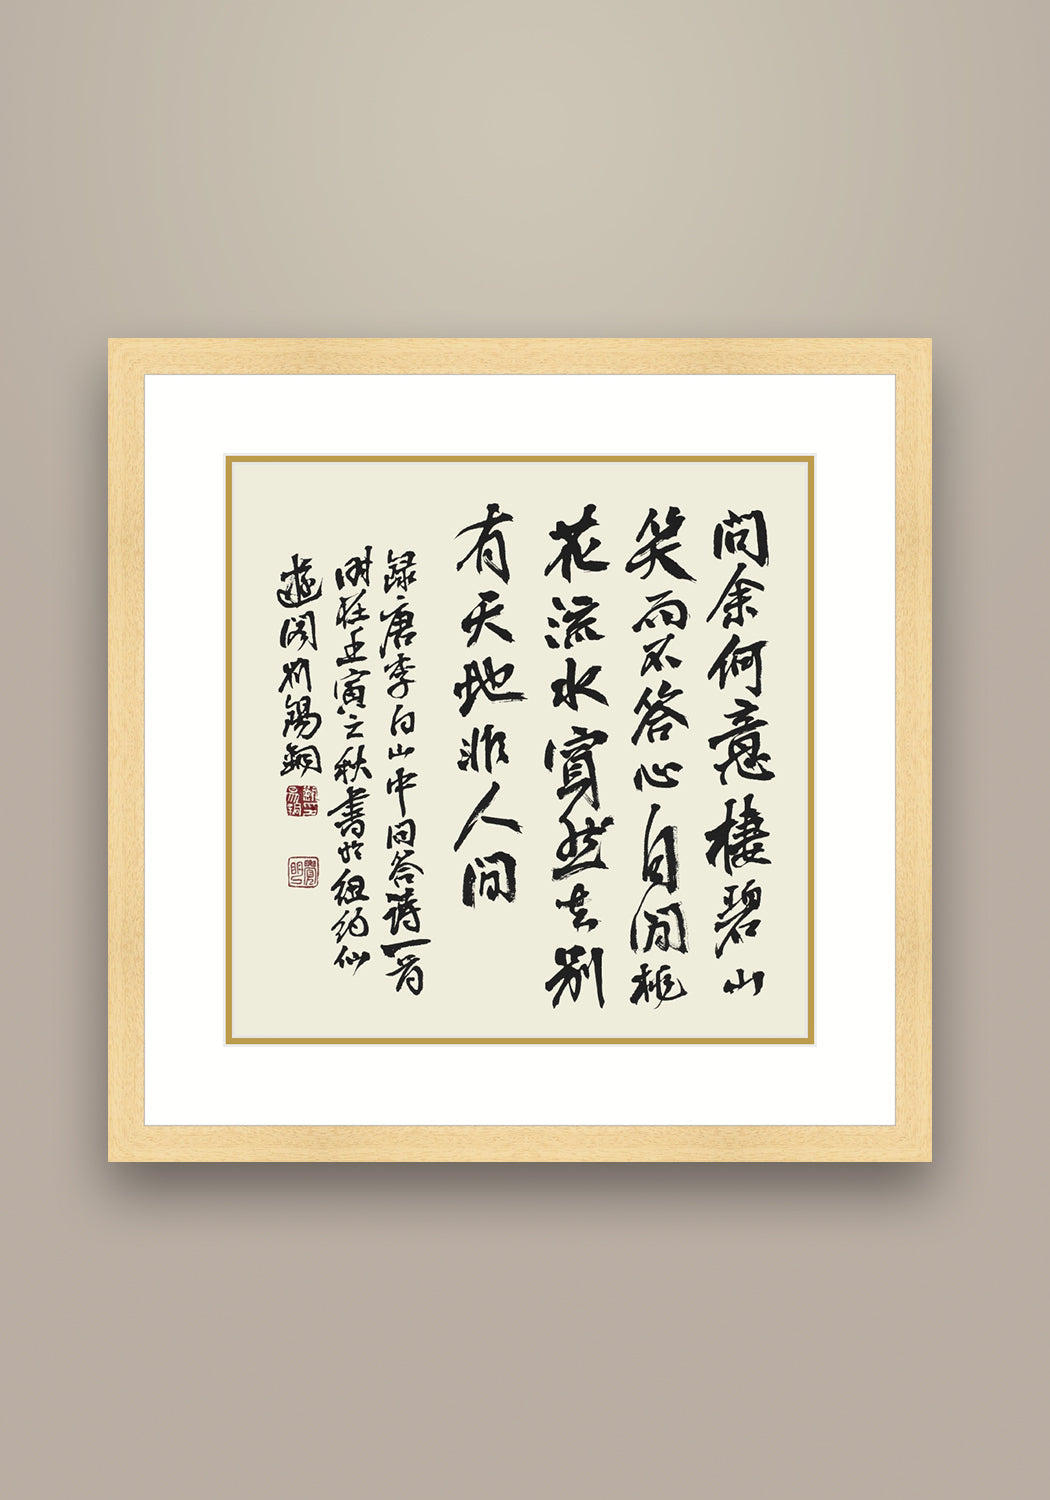 問余何意棲碧山
笑而不答心自閒桃
花流水窅然去別
有天地非人間
錄唐李白山中問答詩一首
時在壬寅之秋書於紐約仙
遊閣劉錫銅